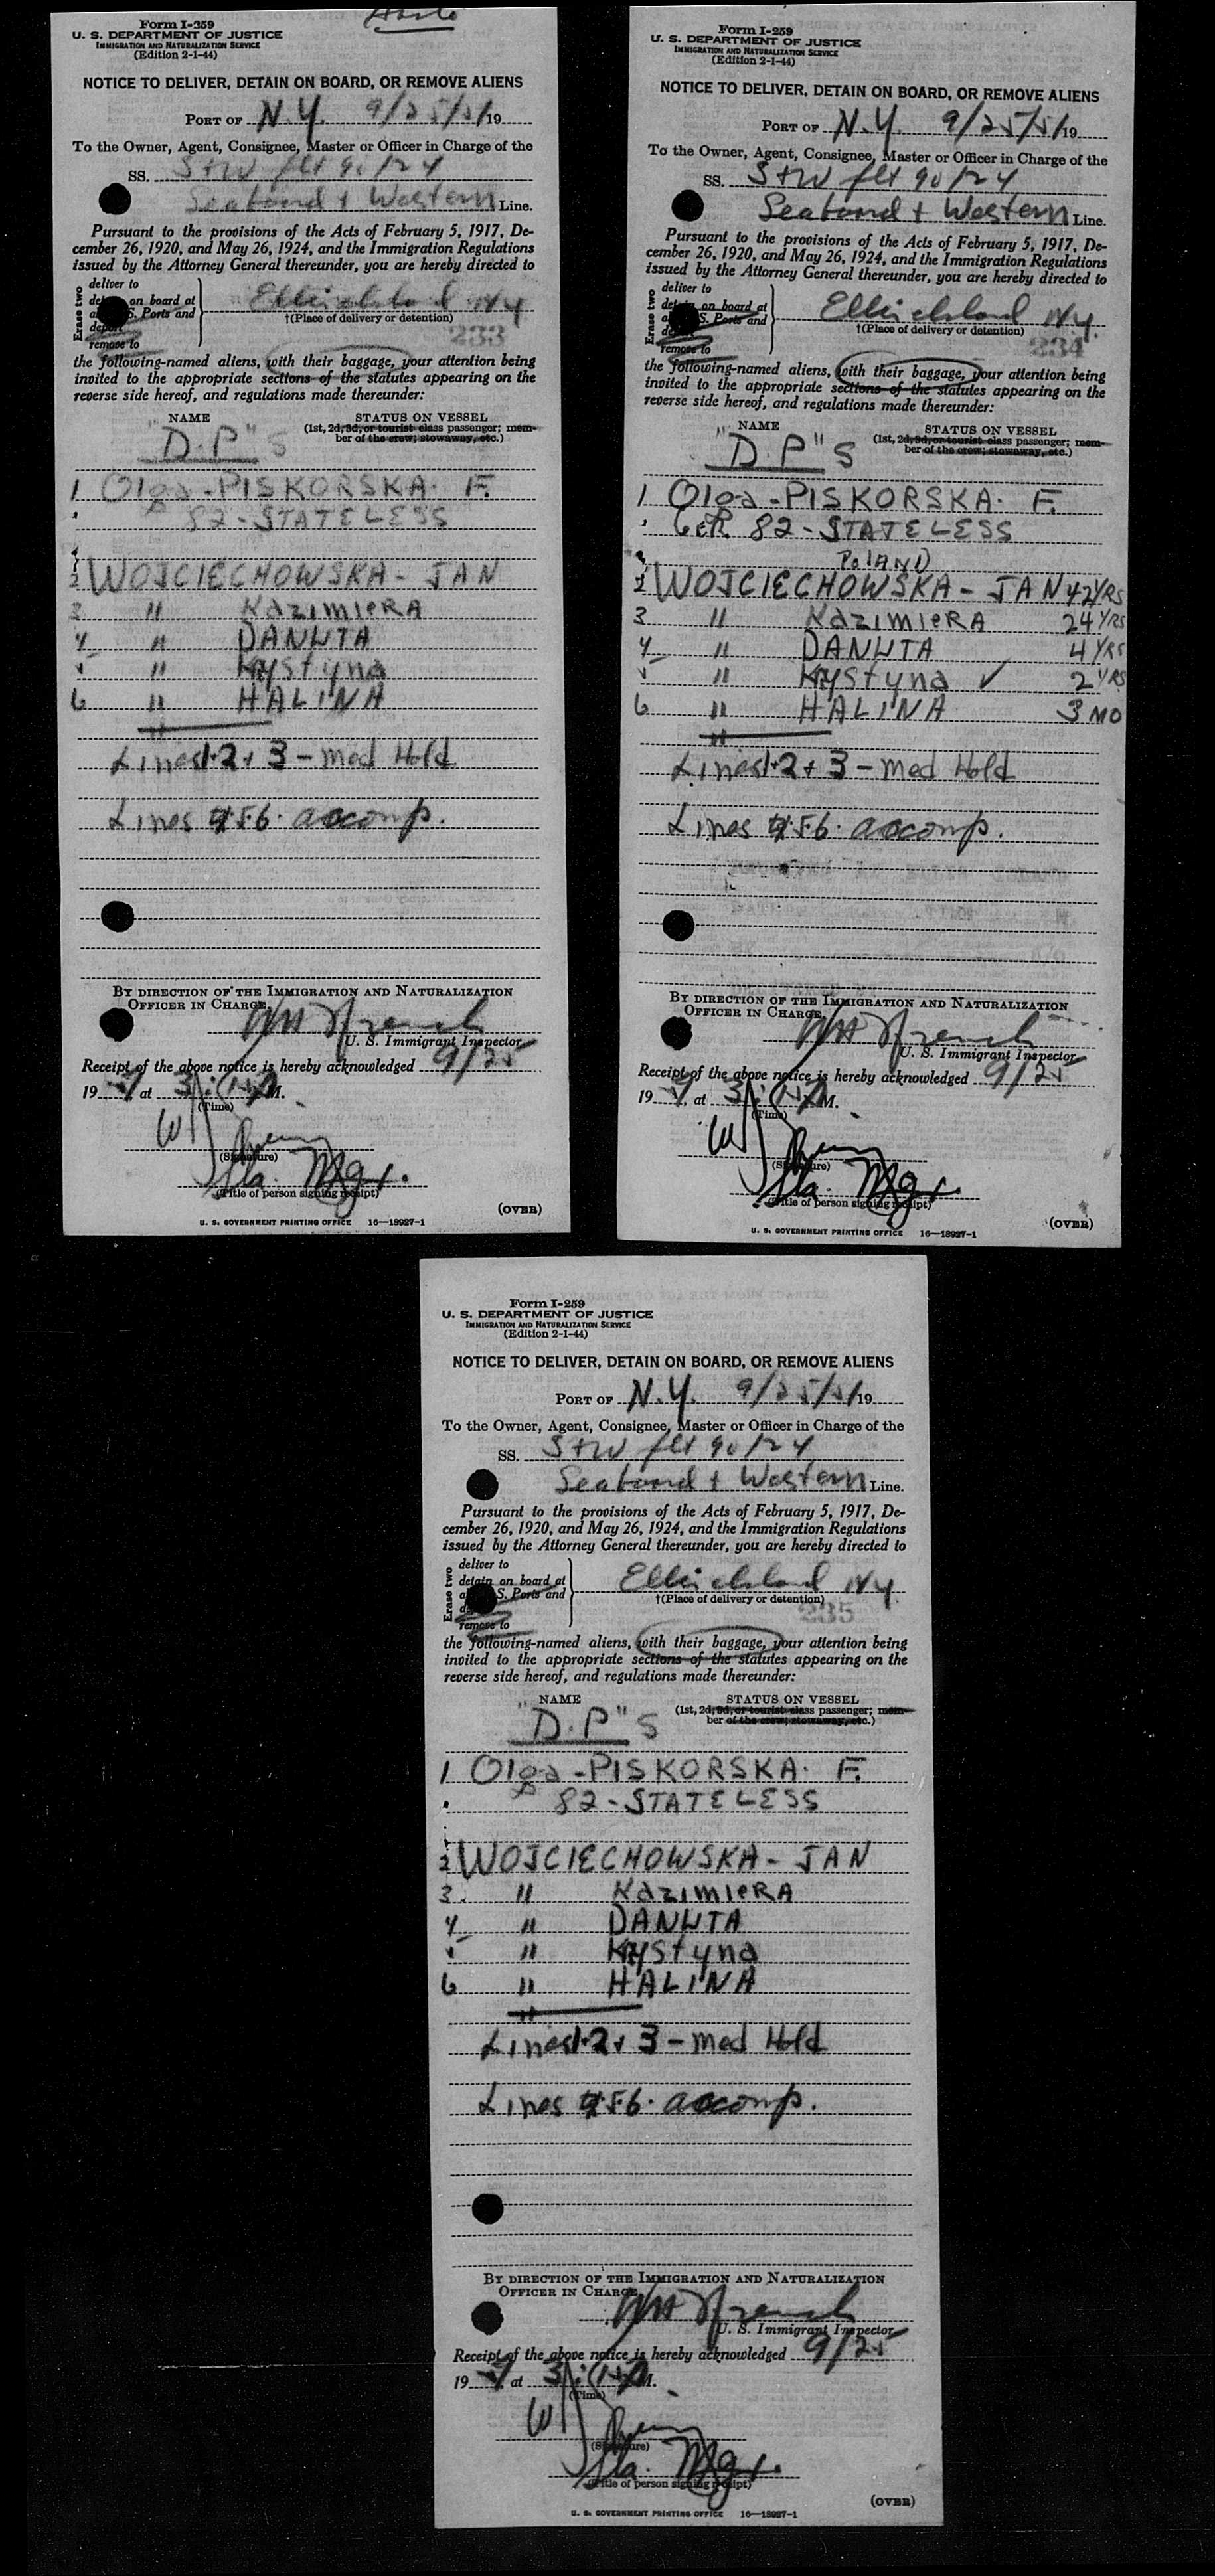 Form I-259
U. S. DEPARTMENT OF JUSTICE
IMMIGRATION AND NATURALIZATION SERVICE
(Edition 2-1-44)
NOTICE TO DELIVER, DETAIN ON BOARD, OR REMOVE ALIENS
PORT OF N.Y. 9/25/51 19
To the Owner, Agent, Consignee, Master or Officer in Charge of the
SS. S+W flt 90/24
Seaboard + Western Line.
Pursuant to the provisions of the Acts of February 5, 1917, De-
cember 26, 1920, and May 26, 1924, and the Immigration Regulations
issued by the Attorney General thereunder, you are hereby directed to
Erase two
deliver to
on board at
S. Ports and
remove to
Ellis Island NY
†(Place of delivery or detention)
233
the following-named aliens, with their baggage, your attention being
invited to the appropriate sections of the statutes appearing on the
reverse side hereof, and regulations made thereunder:
NAME STATUS ON VESSEL
(1st, 2d, 3d, or tourist class passenger; mem-
ber of the crew; stowaway, etc.)
"D.P"S
1 Olga - PISKORSKA. F.
82 - STATELESS
2 WOJCIECHOWSKA - JAN
3 " KAZIMIERA
4 " DANUTA
5 " Krystyna
6 " HALINA
Lines 1+2+3 - med Hold
Lines 4.5.6. accomp.
BY DIRECTION OF THE IMMIGRATION AND NATURALIZATION
OFFICER IN CHARGE,
U. S. Immigrant Inspector
Receipt of the above notice is hereby acknowledged 9/25
19 at M.
(Time)
(Signature)
Sta. Mgr.
(Title of person signing receipt)
(OVER)
U. S. GOVERNMENT PRINTING OFFICE 16—18927-1
Form I-259
U. S. DEPARTMENT OF JUSTICE
IMMIGRATION AND NATURALIZATION SERVICE
(Edition 2-1-44)
NOTICE TO DELIVER, DETAIN ON BOARD, OR REMOVE ALIENS
PORT OF N.Y. 9/25/51 19
To the Owner, Agent, Consignee, Master or Officer in Charge of the
SS. S+W flt 90/24
Seaboard + Western Line.
Pursuant to the provisions of the Acts of February 5, 1917, De-
cember 26, 1920, and May 26, 1924, and the Immigration Regulations
issued by the Attorney General thereunder, you are hereby directed to
Erase two
deliver to
detain on board at
S. Ports and
remove to
Ellis Island NY.
†(Place of delivery or detention)
234
the following-named aliens, with their baggage, your attention being
invited to the appropriate sections of the statutes appearing on the
reverse side hereof, and regulations made thereunder:
NAME STATUS ON VESSEL
(1st, 2d, 3d, or tourist class passenger; mem-
ber of the crew; stowaway, etc.)
"D.P"S
1 Olga - PISKORSKA. F.
GER. 82 - STATELESS
POLAND
2 WOJCIECHOWSKA - JAN 42 YRS
3 " KAZIMIERA 24 YRS
4 " DANUTA 4 YRS
5 " Krystyna ✓ 2 YRS
6 " HALINA 3 MO
Lines 1+2+3 - med Hold
Lines 4.5.6. accomp.
BY DIRECTION OF THE IMMIGRATION AND NATURALIZATION
OFFICER IN CHARGE,
U. S. Immigrant Inspector
Receipt of the above notice is hereby acknowledged 9/25
19 at M.
(Time)
(Signature)
Sta. Mgr.
(Title of person signing receipt)
(OVER)
U. S. GOVERNMENT PRINTING OFFICE 16—18927-1
Form I-259
U. S. DEPARTMENT OF JUSTICE
IMMIGRATION AND NATURALIZATION SERVICE
(Edition 2-1-44)
NOTICE TO DELIVER, DETAIN ON BOARD, OR REMOVE ALIENS
PORT OF N.Y. 9/25/51 19
To the Owner, Agent, Consignee, Master or Officer in Charge of the
SS. S+W flt 90/24
Seaboard + Western Line.
Pursuant to the provisions of the Acts of February 5, 1917, De-
cember 26, 1920, and May 26, 1924, and the Immigration Regulations
issued by the Attorney General thereunder, you are hereby directed to
Erase two
deliver to
detain on board at
S. Ports and
remove to
Ellis Island NY
†(Place of delivery or detention)
235
the following-named aliens, with their baggage, your attention being
invited to the appropriate sections of the statutes appearing on the
reverse side hereof, and regulations made thereunder:
NAME STATUS ON VESSEL
(1st, 2d, 3d, or tourist class passenger; mem-
ber of the crew; stowaway, etc.)
"D.P"S
1 Olga - PISKORSKA. F.
82 - STATELESS
2 WOJCIECHOWSKA - JAN
3. " KAZIMIERA
4 " DANUTA
5 " Krystyna
6 " HALINA
Lines 1+2+3 - med Hold
Lines 4.5.6. accomp.
BY DIRECTION OF THE IMMIGRATION AND NATURALIZATION
OFFICER IN CHARGE,
U. S. Immigrant Inspector
Receipt of the above notice is hereby acknowledged 9/25
19 at M.
(Time)
(Signature)
Sta. Mgr.
(Title of person signing receipt)
(OVER)
U. S. GOVERNMENT PRINTING OFFICE 16—18927-1